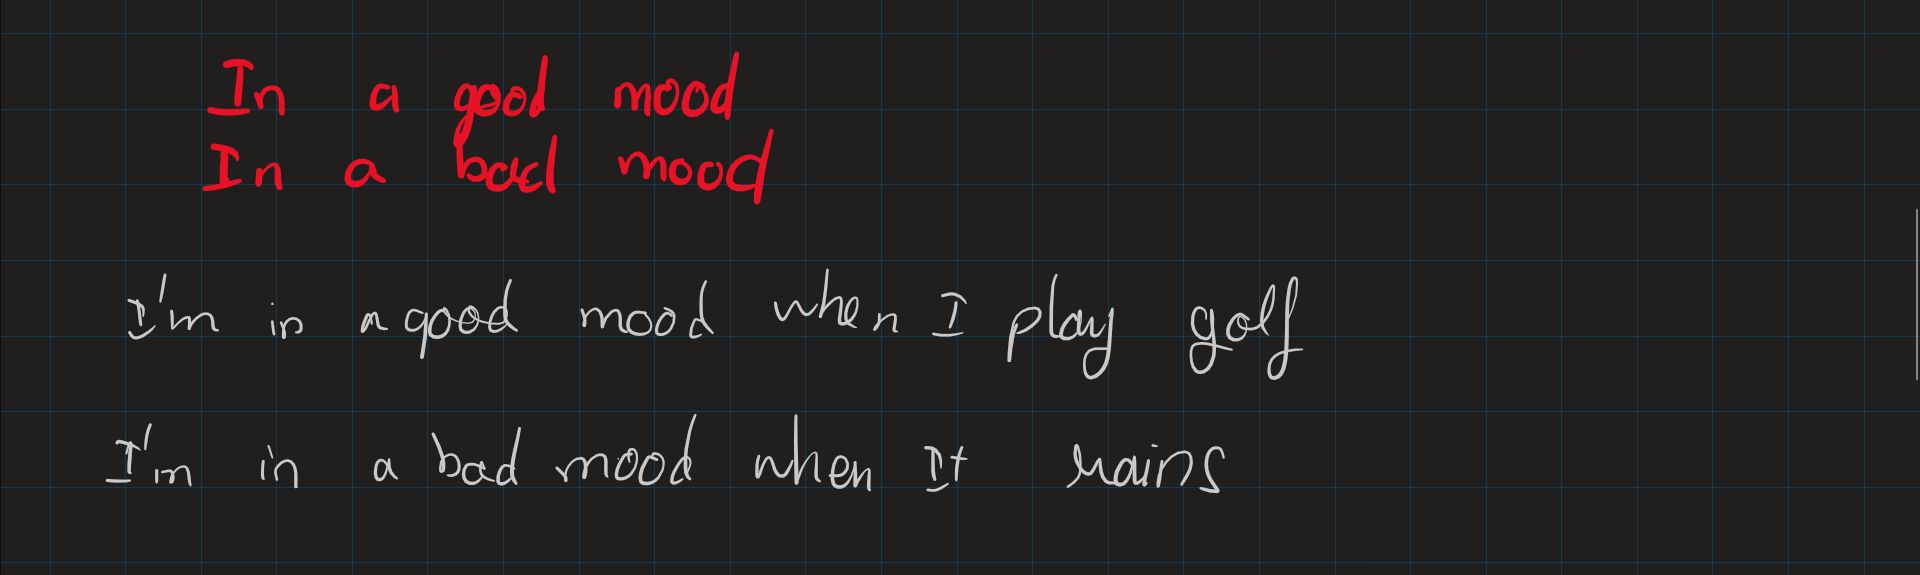 In a good mood
In a bad mood
I'm in a good mood when I play golf
I'm in a bad mood when It rains